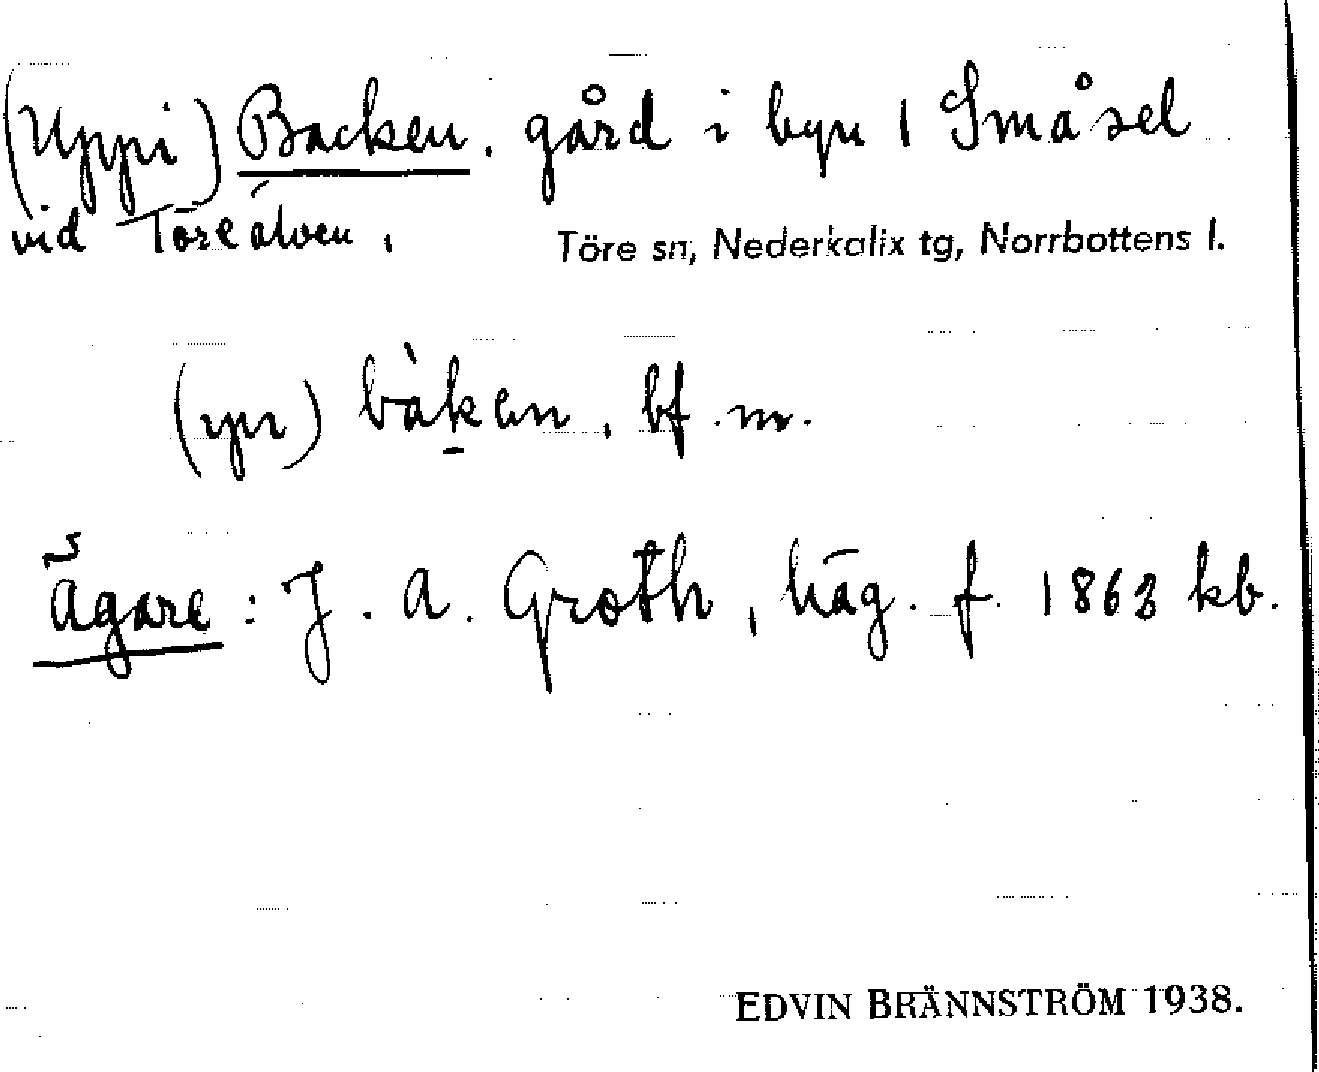 (Uppi) Backen. gård i byn 1 Småsel
vid Töreälven. Töre sn, Nederkalix tg, Norrbottens l.
(ypi) bàḵen, bf. m.
Ägare: J. A. Groth, häg. f. 1863 kb.
EDVIN BRÄNNSTRÖM 1938.